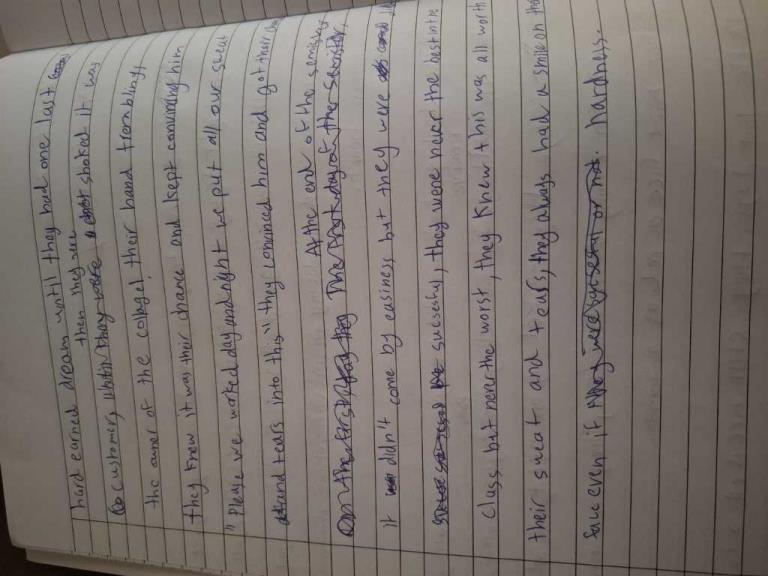 hard earned dream until they had one last
then they were
customer, until they were a shoked it was
the owner of the colagel, their hand trembling,
they knew it was their chance and kept convincing him
"Please we worked day and night we put all our sweat
and tears into this" they convinced him and got their
At the end of the semister
The first day of ther semister,
it didn't come by easiness but they were
sucsesful, they were never the best in the
class but never the worst, they knew this was all worth
their sweat and tears, they always had a smile on their
face even if they were sucsesful or not. hardness.